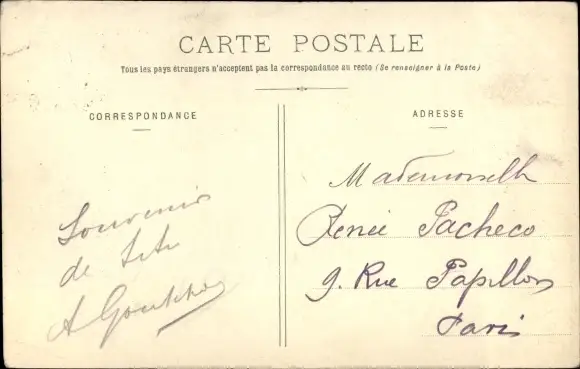 CARTE POSTALE
Tous les pays étrangers n'acceptent pas la correspondance au recto (Se renseigner à la Poste)
CORRESPONDANCE
ADRESSE
Souvenir
de
A
Mademoiselle
Renée Pacheco
9. Rue Papillon
Paris